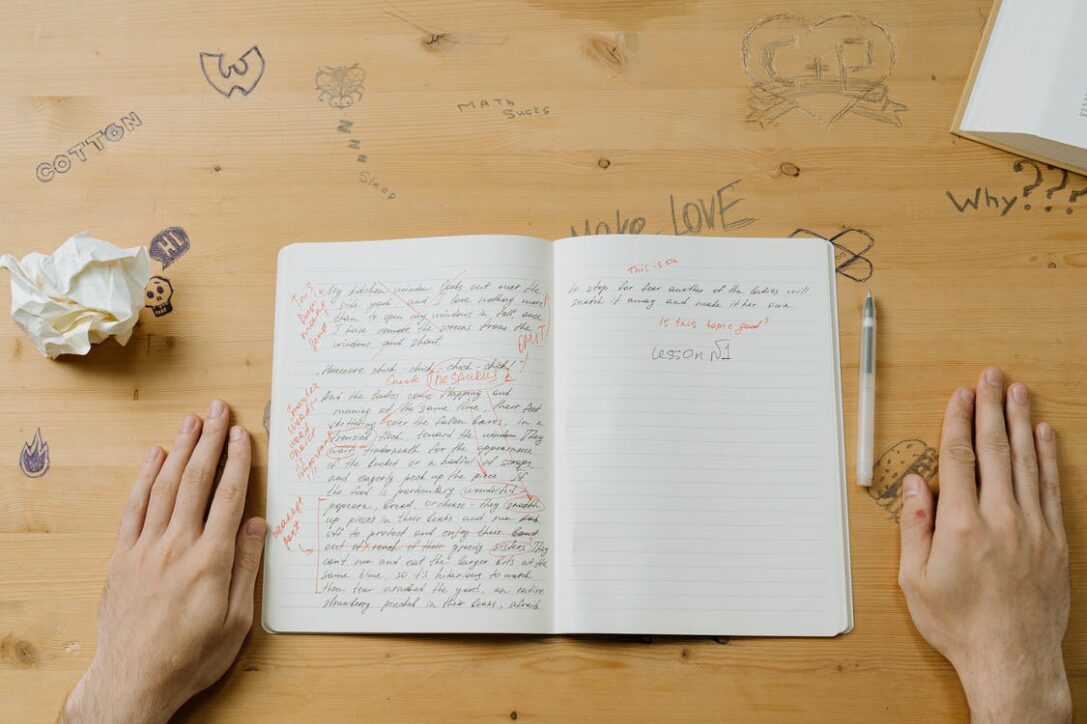 W
COTTON
MATH
SUCKS
C+P
zzzz
Sleep
Why???
HI
Make LOVE
My kitchen window looks out over the
side yard and I love nothing more
than to open my windows in fall once
I have remove the screens from the
windows, and shout.
OMIT!
chick-chick-chick-chick!"
Check Thesaurus
And the ladies come flapping and
running at the same time, their feet
skittering over the fallen leaves, in a
frenzied toward the window. They
wait underneath for the appearance
of the bucket or a handful of scraps,
and eagerly peck up the piece. If
the food is particulary wonderful -
popcorn, bread, or cheese - they snatch
up pieces in their beaks and run
off to protect and enjoy their
out of reach of their greedy sisters. They
can't run and eat the larger bits at the
same time, so it's hilarious to watch
them tear around the yard, an entire
strawberry pinched in their beaks, afraid
This
Smarter
words
part
this is a
to stop for fear another of the ladies will
snatch it away and make it her own.
Is this topic good?
Lesson №1